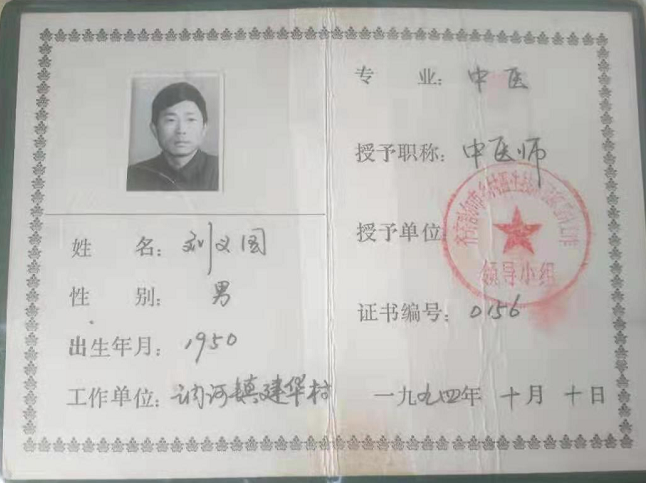 姓 名：刘义国
性 别：男
出生年月：1950
工作单位：讷河镇建华村
专 业：中医
授予职称：中医师
授予单位
领导小组
证书编号：0156
一九九四年 十月 十日